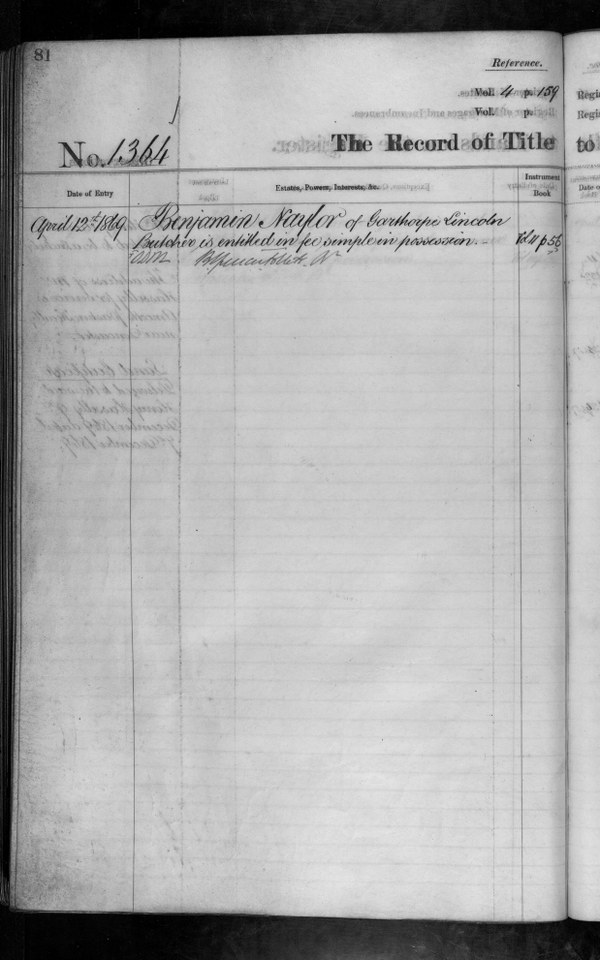 81
Reference.
Vol. 4 p. 159
Vol. p.
No. 1364
The Record of Title to
Date of Entry
Estates, Powers, Interests, &c.
Instrument Book
April 12th 1869
Benjamin Naylor of Garthorpe Lincoln
is entitled in fee simple in possession.
Vol 11 p 56